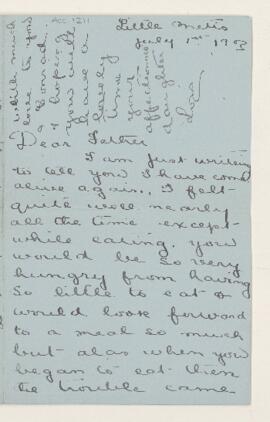 ACC 1211
Little Metis
July 1st 1903
Dear Father
I am just writing
to tell you I have come
alive again. I felt
quite well nearly
all the time except
while eating. you
would be so very
hungry from having
so little to eat &
would look forward
to a meal so much
but alas when you
began to eat then
the trouble came
with much
love to you
I hope
you will
have a
lovely
time
your
affectionate
daughter